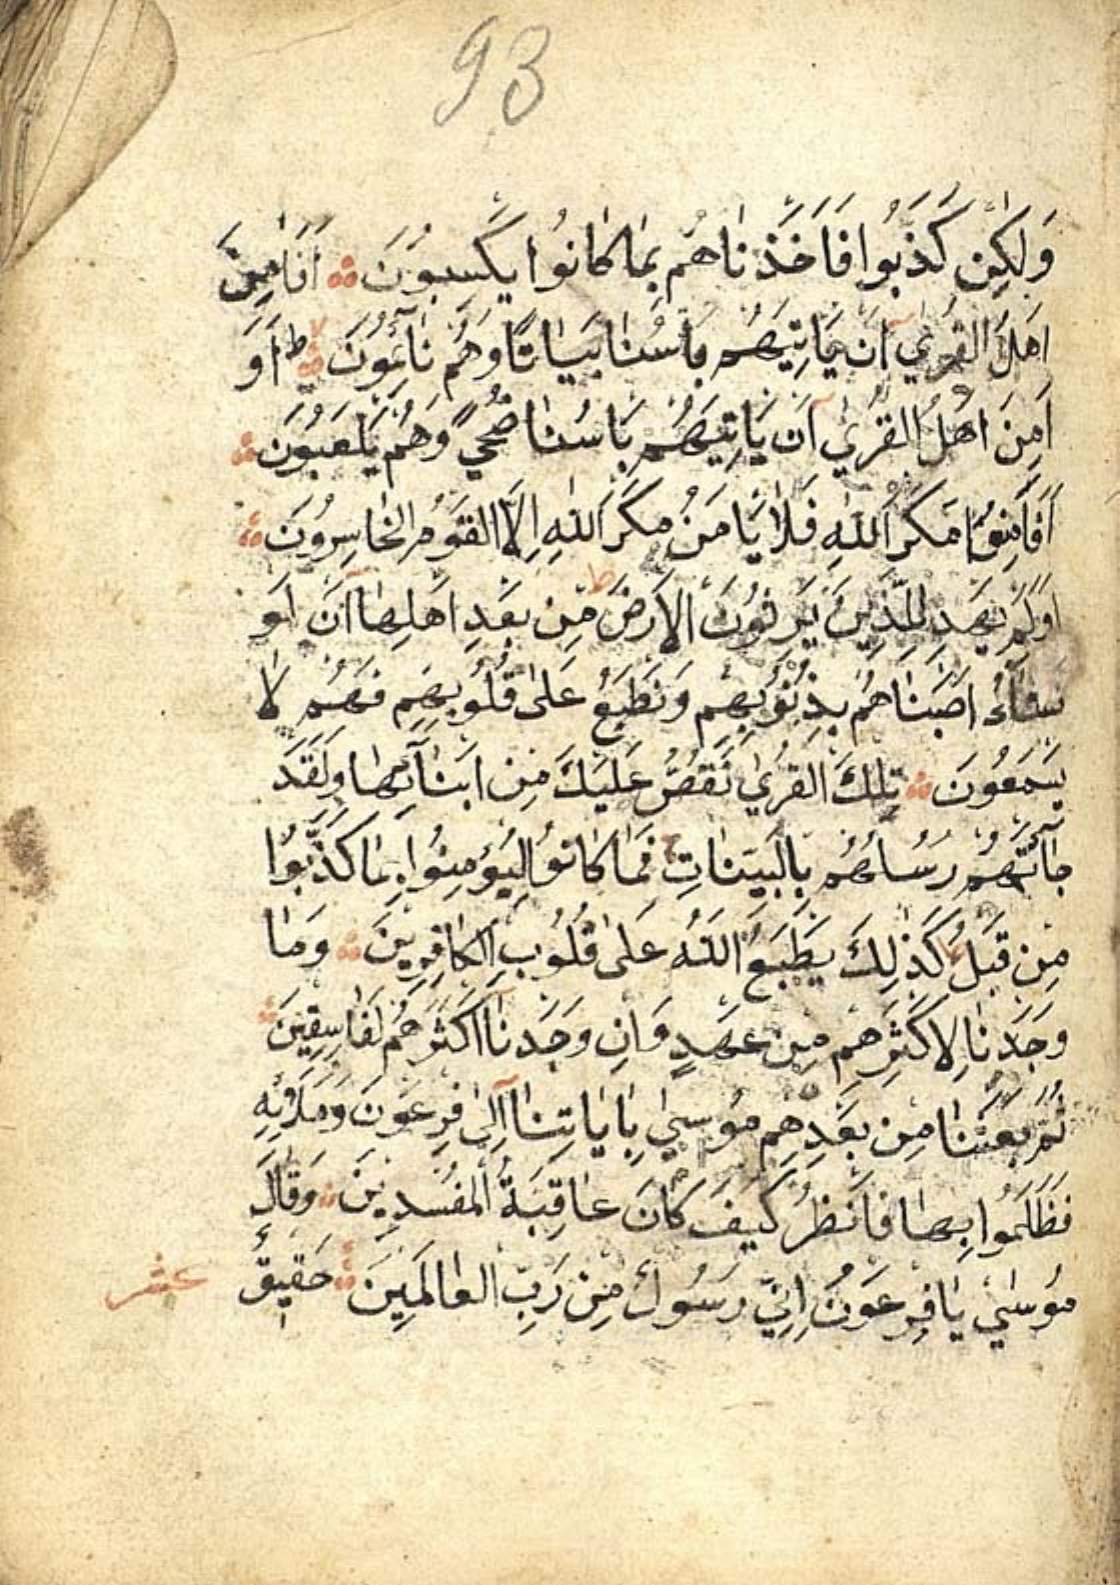 93
وَلٰكِن كَذَّبُوا فَاَخَذْنَاهُم بِمَا كَانُوا يَكْسِبُونَ اَفَاَمِنَ
اَهْلُ القُرٰي اَن يَاتِيَهُم بَاسُنَا بَيَاتًا وَهُمْ نَائِمُونَ ط اَوَ
اَمِنَ اَهْلُ القُرٰي اَن يَاتِيَهُم بَاسُنَا ضُحيً وَهُمْ يَلْعَبُونَ
اَفَاَمِنُوا مَكْرَ اللهِ فَلَا يَامَنُ مَكْرَ اللهِ اِلَّا القَوْمُ الخَاسِرُونَ
اَوَلَمْ يَهْدِ لِلَّذِينَ يَرِثُونَ الاَرْضَ ط مِن بَعْدِ اَهْلِهَا اَن لَو
نَشَاءُ اَصَبْنَاهُم بِذُنُوبِهِم وَنَطْبَعُ عَلٰى قُلُوبِهِم فَهُم لَا
يَسْمَعُونَ تِلْكَ القُرٰي نَقُصُّ عَلَيْكَ مِن اَنبَآئِهَا وَلَقَدْ
جَآئَتْهُمْ رُسُلُهُم بِالبَيِّنَاتِ ج فَمَا كَانُوا لِيُؤمِنُوا بِمَا كَذَّبُوا
مِن قَبْلُ كَذٰلِكَ يَطْبَعُ اللهُ عَلٰى قُلُوبِ الكَافِرِينَ وَمَا
وَجَدْنَا لِاَكْثَرِهِم مِن عَهْدٍ وَاِن وَجَدْنَا اَكْثَرَهُمْ لَفَاسِقِينَ
ثُمَّ بَعَثْنَا مِن بَعْدِهِم مُوسٰي بِاٰيَاتِنَا اِلٰى فِرْعَوْنَ وَمَلَائِهِ
فَظَلَمُوا بِهَا فَانْظُرْ كَيْفَ كَانَ عَاقِبَةُ المُفْسِدِينَ وَقَالَ
مُوسٰي يَا فِرْعَوْنُ اِنِّي رَسُولٌ مِن رَبِّ العَالَمِينَ حَقِيقٌ
عشر